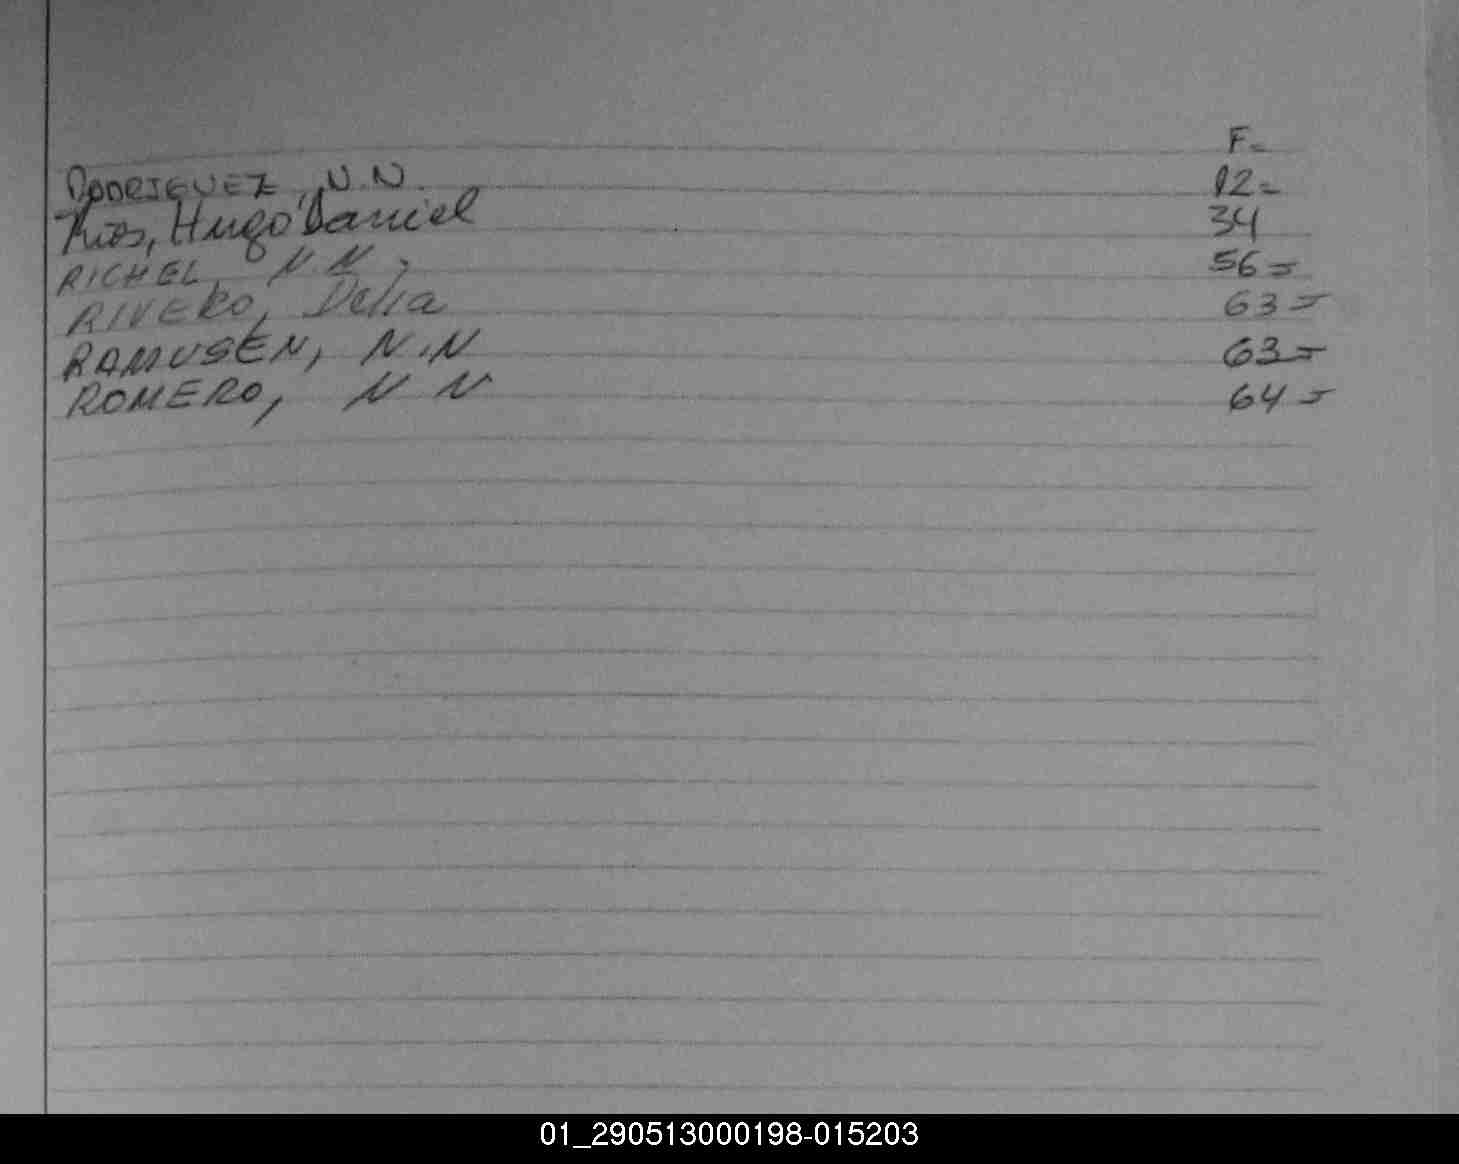 F=
RODRIGUEZ, N.N. 12=
Rios, Hugo Daniel 34
RICHEL N.N, 56=
RIVERO, Delia 63=
RAMUSEN, N.N 63=
ROMERO, N N 64=
01_290513000198-015203